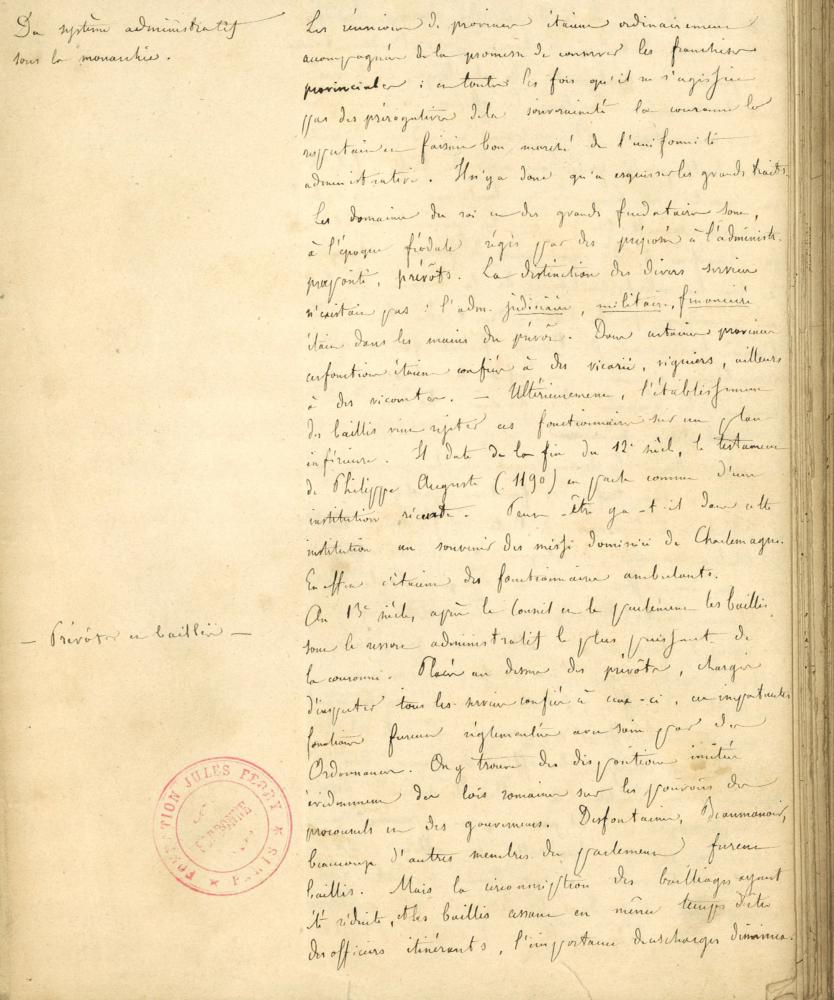 Du système administratif
sous la monarchie.
Les réunions de provinces étaient ordinairement
accompagnées de la promesse de conserver les franchises
provinciales : en toutes les fois qu'il ne s'agissait
pas des prérogatives de la souveraineté la couronne les
respectait en faisant bon marché de l'uniformité
administrative. Il n'y a donc qu'à esquisser les grands traits.
Les domaines du roi et des grands feudataires sont,
à l'époque féodale régis par des préposés à l'administr.
praepositi, prévôts. La distinction des divers services
n'existait pas : l'adm. judiciaire, militaire, financière
était dans les mains du prévôt. Dans certaines provinces
ces fonctions étaient confiées à des vicarii, viguiers, ailleurs
à des vicomtes. — Ultérieurement, l'établissement
des baillis vint rejeter ces fonctionnaires sur un plan
inférieur. Il date de la fin du 12e siècle, le testament
de Philippe Auguste (1190) en parle comme d'une
institution récente. Peut-être y a-t-il dans cette
institution un souvenir des missi dominici de Charlemagne.
En effet c'étaient des fonctionnaires ambulants.
— Prévôts et baillis —
Au 13e siècle, après le Conseil et le parlement les baillis
sont le ressort administratif le plus puissant de
la couronne. Placés au dessus des prévôts, chargés
d'inspecter tous les services confiés à ceux-ci, ces importantes
fonctions furent réglementées avec soin par des
Ordonnances. On y trouve des dispositions imitées
évidemment des lois romaines sur les pouvoirs des
proconsuls et des gouverneurs. Desfontaines, Beaumanoir,
beaucoup d'autres membres du parlement furent
baillis. Mais la circonscription des bailliages ayant
été réduite, et les baillis cessant en même temps d'être
des officiers itinérants, l'importance de ces charges diminua.
FONDATION JULES FERRY
SORBONNE
PARIS